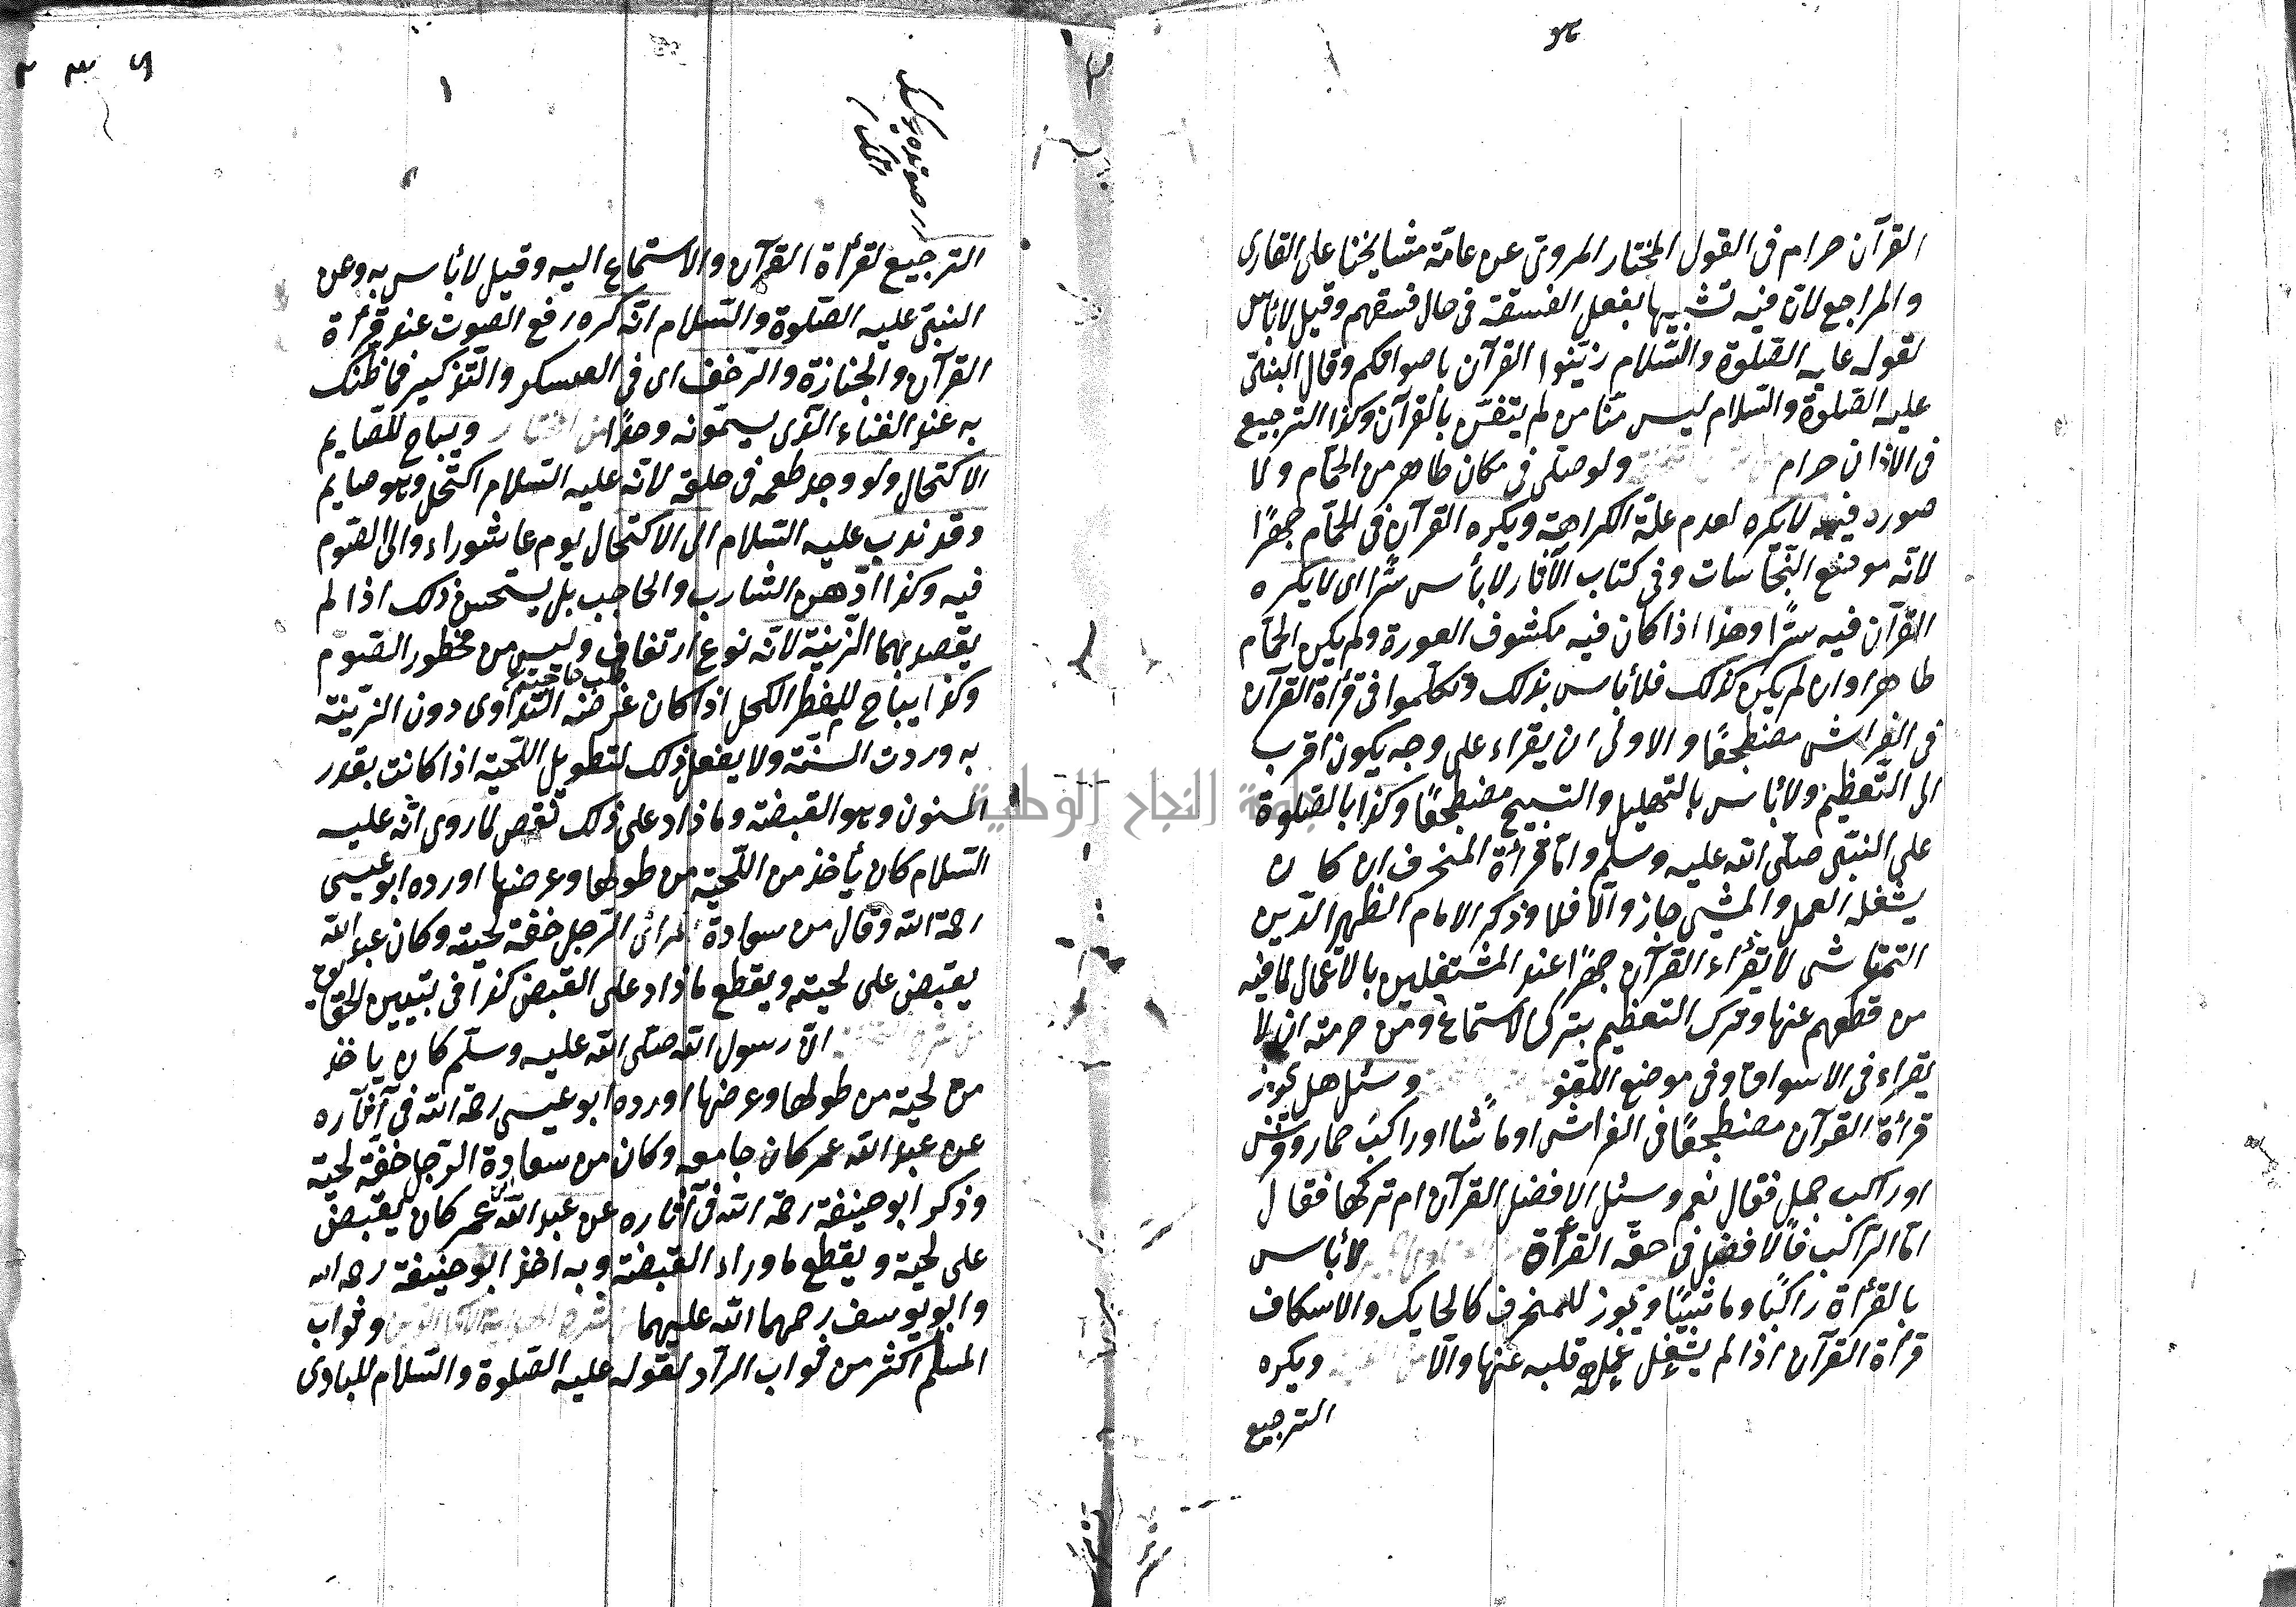 القرآن حرام فى القول المختار المروى عن عامّة مشايخنا على القارى
والمراجع لانّ فيه تشبيها بفعل الفسقة فى حال فسقهم وقيل لا بأس
لقوله عليه الصّلوة والسّلام زيّنوا القرآن باصواتكم وقال النبىّ
عليه الصّلوة والسّلام ليس منّا من لم يتغنّ بالقرآن وكذا الترجيع
فى الاذان حرام ولو صلّى فى مكان طاهر من الحمّام ولا
صورة فيه لا يكره لعدم علّة الكراهة ويكره القرآن فى الحمّام جهرًا
لانّه موضع النّجاسات وفى كتاب الآثار لا بأس سرًّا اى لا يكره
القرآن فيه سرًّا وهذا اذا كان فيه مكشوف العورة ولم يكن الحمّام
طاهرا وان لم يكن كذلك فلا بأس بذلك وتكلّموا فى قرأة القرآن
فى الفراش مضطجعًا والاولى ان يقراء على وجه يكون اقرب
الى التّعظيم ولا بأس بالتهليل والتسبيح مضطجعًا وكذا بالصّلوة
على النبىّ صلّى الله عليه وسلّم وامّا قرأة المنحرف ان كان
يشغله العمل والمشى جاز والّا فلا وذكر الامام الظهير الدّين
التمقاشى لا يقراء القرآن جهرًا عند المشتغلين بالاعمال لما فيه
من قطعهم عنها وترك التعظيم بترك الاستماع ومن حرمته ان لا
يقراء فى الاسواق وفى موضع اللّغو وسئل هل يجوز
قرأة القرآن مضطجعًا فى الفراش او ماشًا او راكب حمار وفرس
او راكب جمل فقال نعم وسئل الافضل القرآن ام تركها فقال
امّا الرّاكب فالافضل فى حقّه القرأة لا بأس
بالقرأة راكبًا وماشيًا ويجوز للمنحرف كالحايك والاسكاف
قرأة القرآن اذا لم يشغل عمله قلبه عنها والّا ويكره
الترجيع
الترجيع لقرأة القرآن والاستماع اليه وقيل لا بأس به وعن
النبىّ عليه الصّلوة والسّلام انّه كره رفع الصوت عند قرأة
القرآن والجنازة والزحف اى فى العسكر والتّذكير فما ظنّك
به عند الغناء الّذى يسمّونه وجدًا ويباح للصّايم
الاكتحال ولو وجد طعمه فى حلقه لانّه عليه السّلام اكتحل وهو صايم
وقد ندب عليه السّلام الى الاكتحال يوم عاشوراء والى الصّوم
فيه وكذا ادّهن الشارب والحاجب بل يستحسن ذلك اذا لم
يقصد بهما الزّينة لانّه نوع ارتفاق وليس من محظور الصّوم
وكذا يباح للمفطر الكحل اذا كان غرضه التّداوى دون الزّينة
به وردت السنّة ولا يفعل ذلك لتطويل اللّحية اذا كانت بقدر
المسنون وهو القبضة وما زاد على ذلك تقص لما روى انّه عليه
السّلام كان يأخذ من اللّحية من طولها وعرضها اورده ابو عيسى
رحمة الله وقال من سعادة الرّجل خفّة لحيته وكان عبد الله
يقبض على لحيته ويقطع ما زاد على القبض كذا فى تبيين الحقايق
انّ رسول الله صلّى الله عليه وسلّم كان ياخذ
من لحيته من طولها وعرضها اورده ابو عيسى رحمة الله فى آثاره
عن عبد الله عمر كان جامعه وكان من سعادة الرّجل خفّة لحيته
وذكر ابو حنيفة رحمة الله فى آثاره عن عبد الله بن عمر كان يقبض
على لحيته ويقطع ما وراء القبضة وبه اخذ ابو حنيفة رحمه الله
وابو يوسف رحمهما الله عليهما وثواب
المسلّم اكثر من ثواب الرّادّ لقوله عليه الصّلوة والسّلام للبادى
جامعة النجاح الوطنية